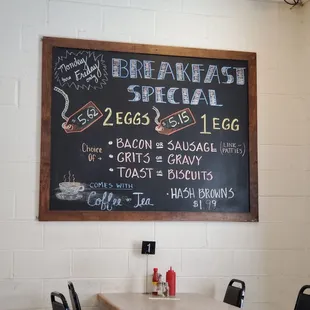 Monday
thru Friday
only
BREAKFAST
SPECIAL
$5.62 2 EGGS $5.15 1 EGG
Choice
of
• BACON OR SAUSAGE (LINK-PATTIES)
• GRITS OR GRAVY
• TOAST OR BISCUITS
COMES WITH
Coffee OR Tea
• HASH BROWNS
$1.99
1